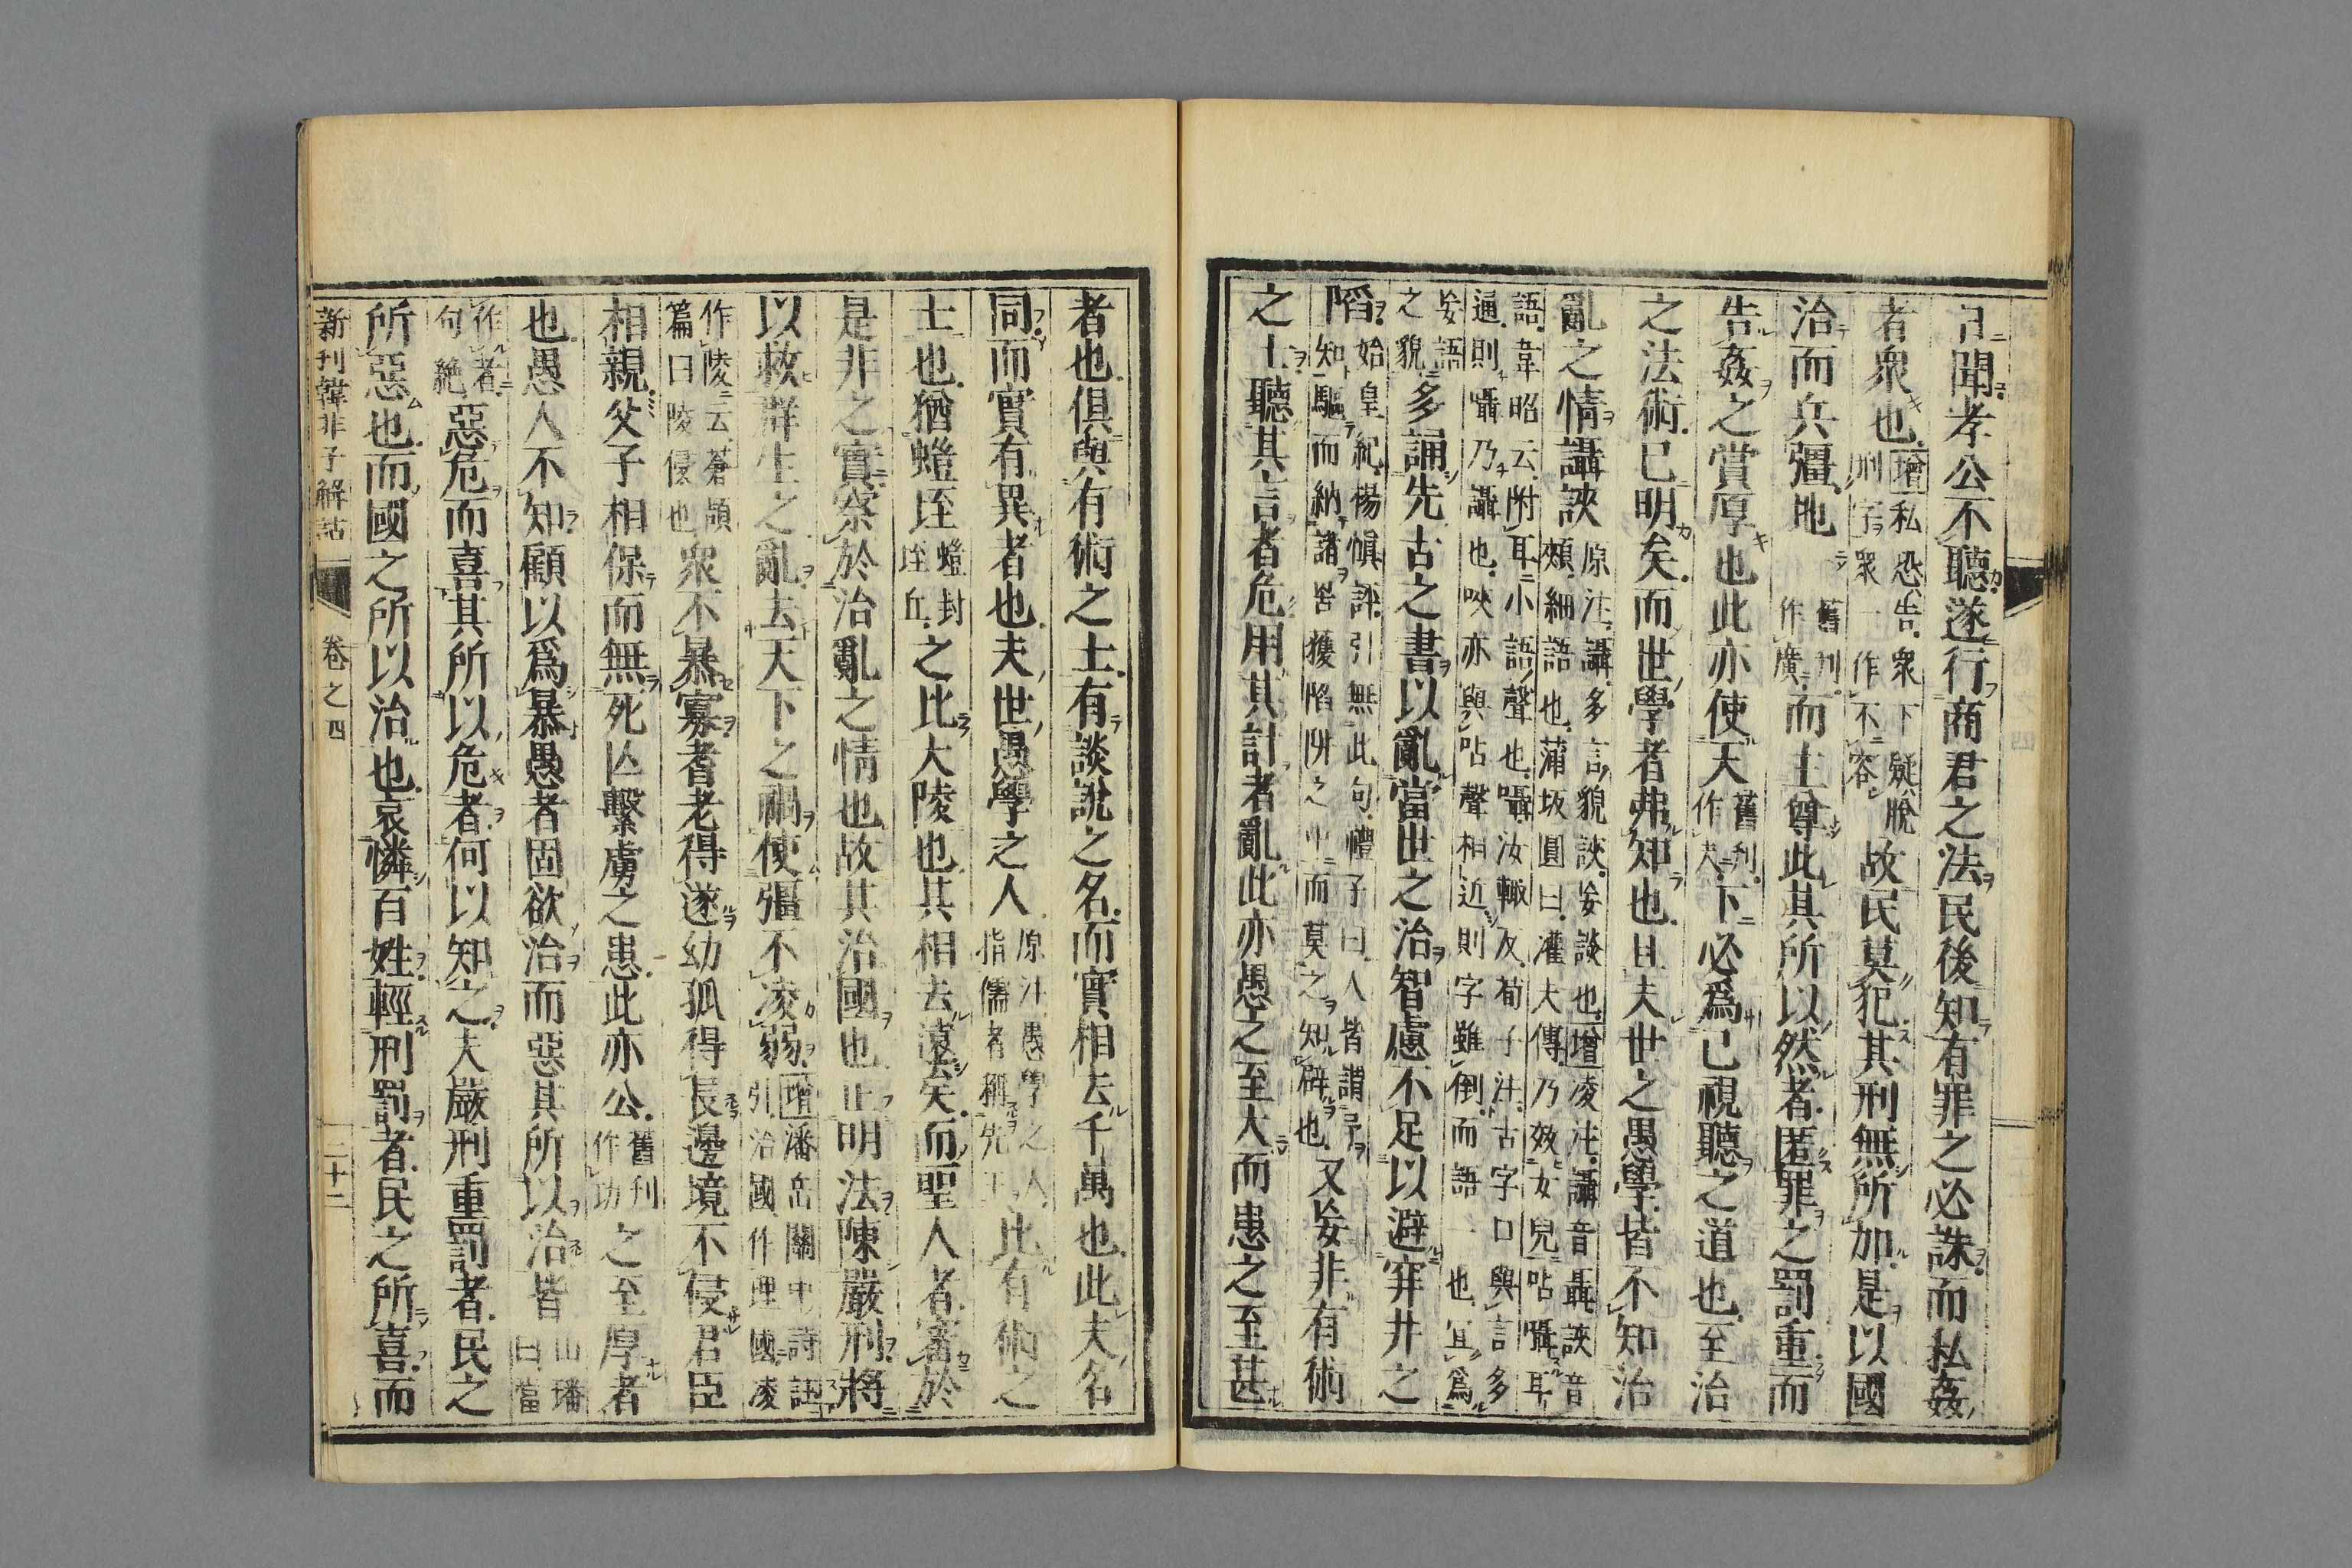 聞孝公不聽遂行商君之法民後知有罪之必誅而私姦
者衆也增私恐告衆下疑脫刑字衆一作不容故民莫犯其刑無所加是以國
治而兵彊地舊刊作廣而主尊此其所以然者匿罪之罰重而
告姦之賞厚也此亦使天舊刊作夫下必爲己視聽之道也至治
之法術已明矣而世學者弗知也且夫世之愚學皆不知治
亂之情讘䛟原注讘多言貌䛟妄談也增凌注讘音聶䛟音頰細語也蒲坂圓曰灌夫傳乃效女兒呫囁耳
語韋昭云附耳小語聲也囁汝輒反荀子注古字口與言多通則囁乃讘也唊亦與呫聲相近則字雖倒而語一也宜爲
妄語之貌多誦先古之書以亂當世之治智慮不足以避穽井之
陷始皇紀楊愼評引無此句禮子曰人皆謂予知驅而納諸罟獲陷阱之中而莫之知辟也又妄非有術
之士聽其言者危用其計者亂此亦愚之至大而患之至甚
者也俱與有術之士有談說之名而實相去千萬也此夫名
同而實有異者也夫世愚學之人原注愚學之人指儒者稱先王比有術之
士也猶螘垤螘封垤丘之比大陵也其相去遠矣而聖人者審於
是非之實察於治亂之情也故其治國也正明法陳嚴刑將
以救群生之亂去天下之禍使彊不凌弱增潘岳關中詩註引治國作理國凌
作陵云蒼頡篇曰陵侵也衆不暴寡耆老得遂幼孤得長邊境不侵君臣
相親父子相保而無死亡繫虜之患此亦公舊刊作功之至厚者
也愚人不知顧以爲暴愚者固欲治而惡其所以治皆山璠曰當
作者句絶惡危而喜其所以危者何以知之夫嚴刑重罰者民之
所惡也而國之所以治也哀憐百姓輕刑罰者民之所喜而
新刊韓非子解詁 卷之四 二十二